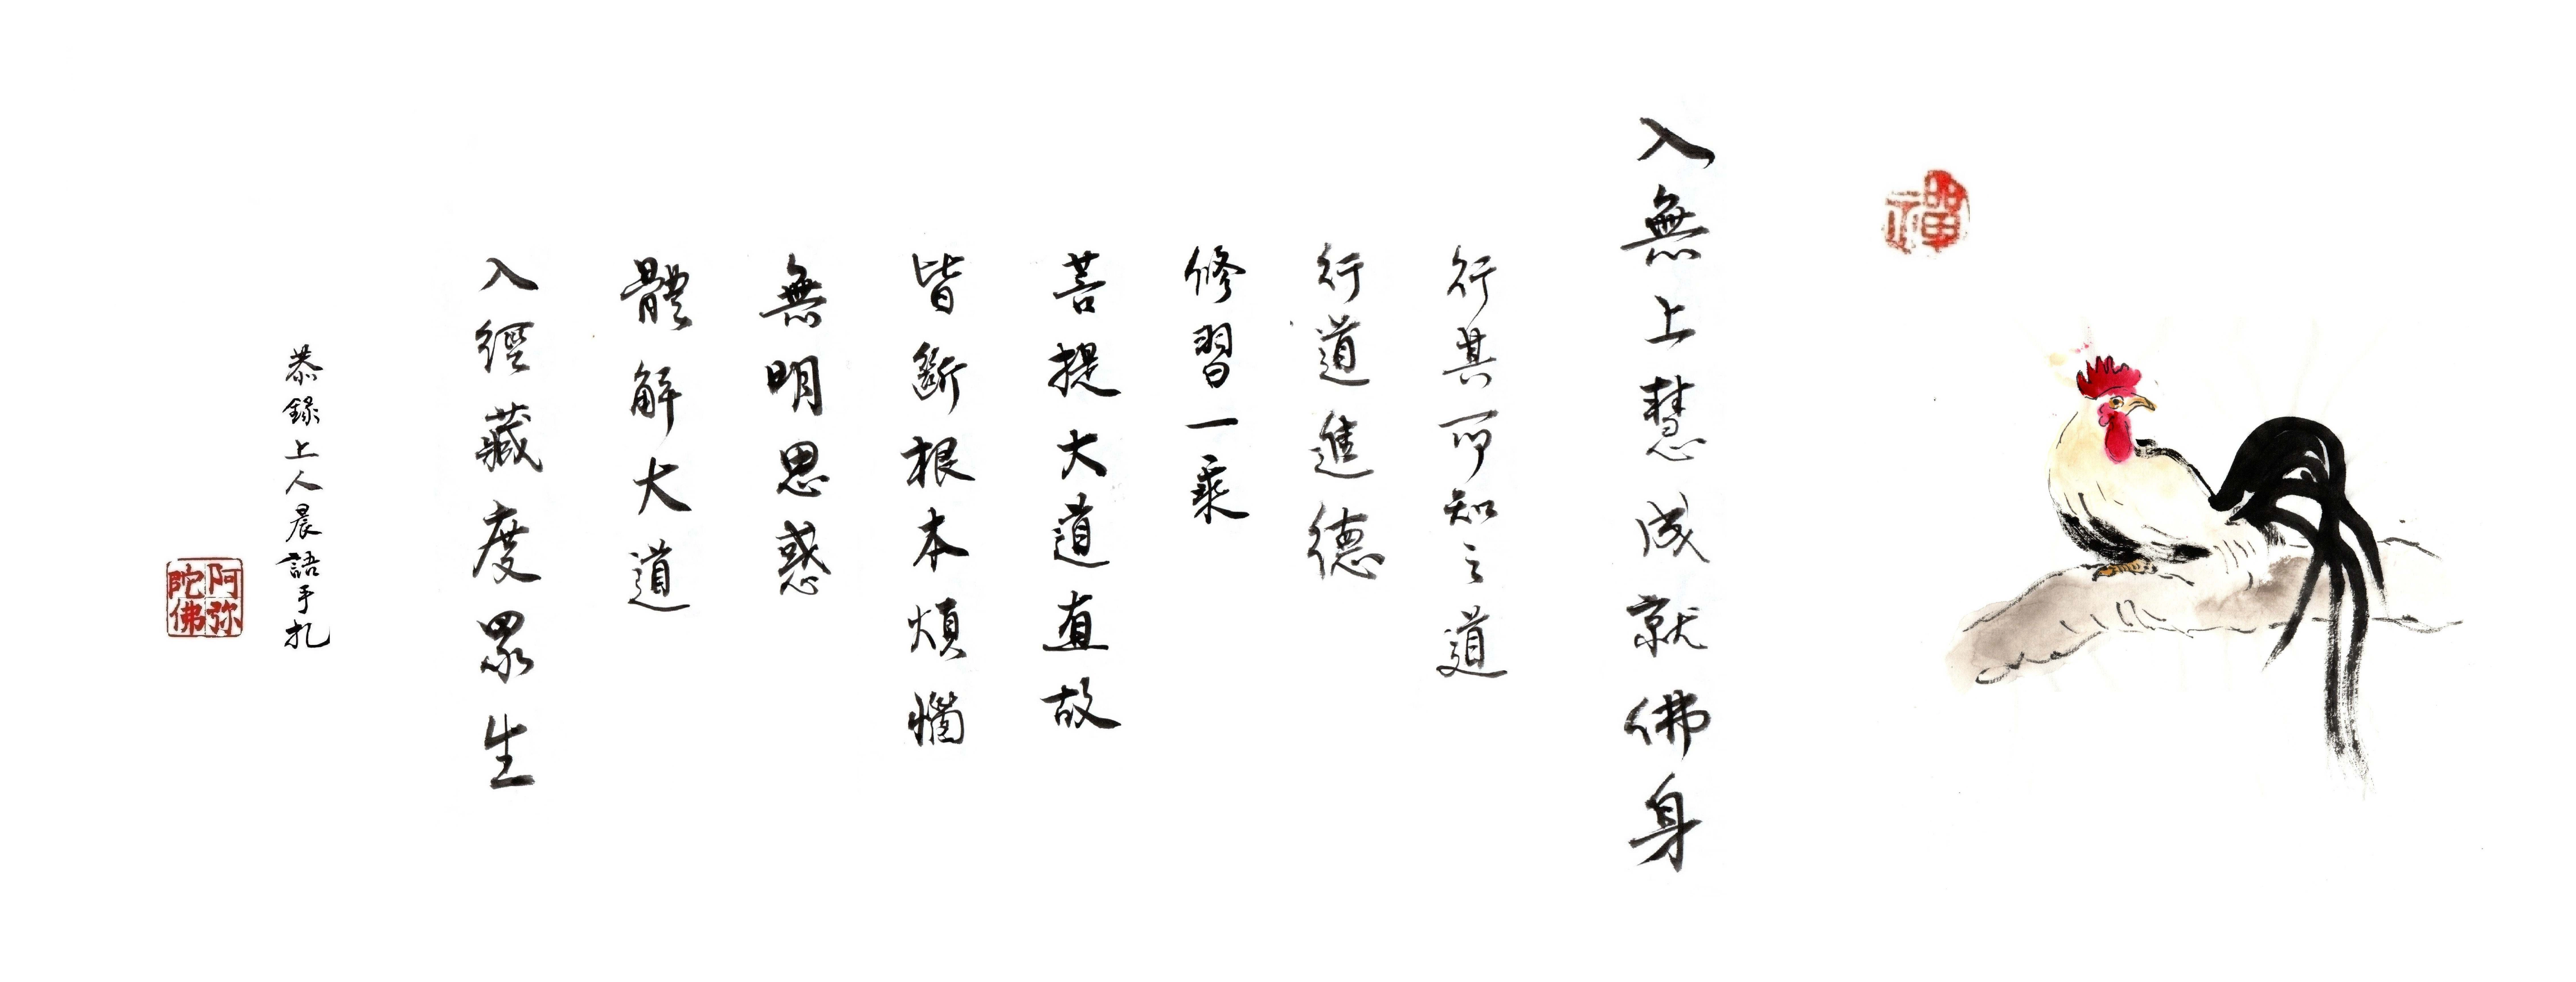 禪
入無上慧成就佛身
行其所知之道
行道進德
修習一乘
菩提大道直故
皆斷根本煩惱
無明思惑
體解大道
入經藏度眾生
恭錄上人晨語手札
阿弥
陀佛